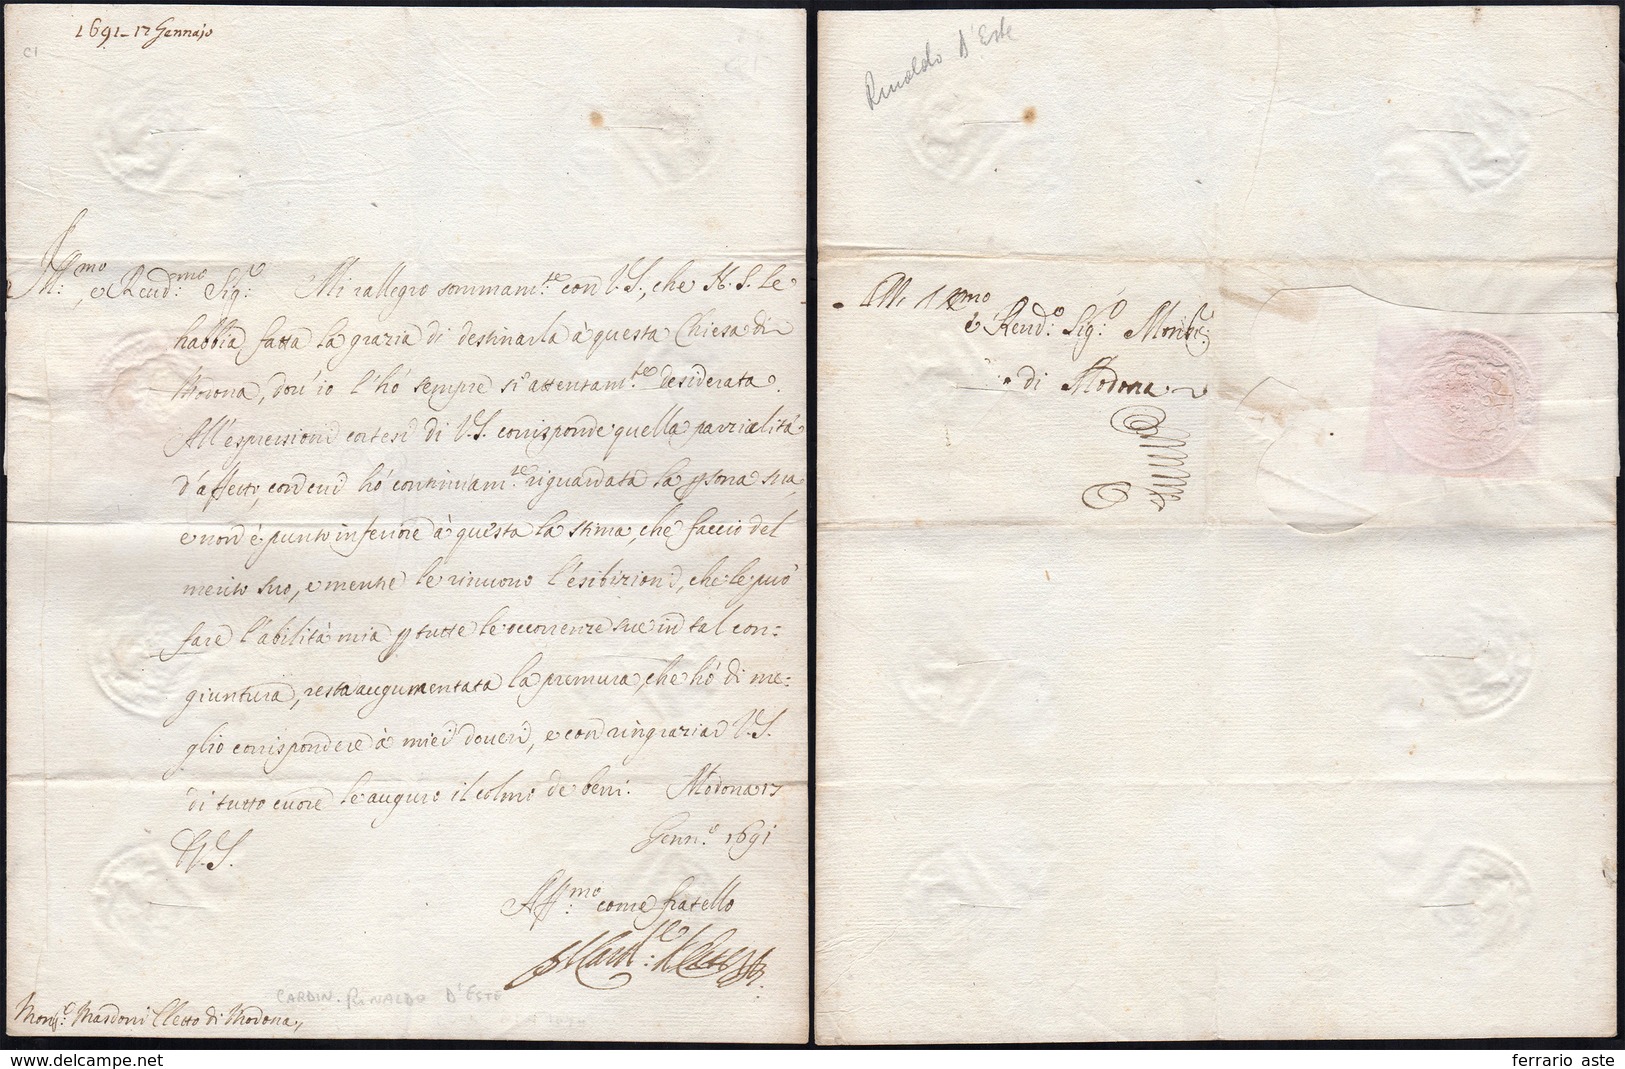 1691-17 Gennajo
C1
Ill:mo, e Reud:mo Sig:e Mi rallegro sommam:te con V.S., che N.S. le
habbia fatta la grazia di destinarla à questa Chiesa di
Modona, dou'io l'hò sempre sì attentam:te desiderata.
All'espressioni cortesi di V.S. corrisponde quella parzialità
d'affetto, con cui hò continuam:te riguardata la psona sua,
e non è punto inferiore à questa la stima, che faccio del
merito suo, e mentre le rinuouo l'esibizioni, che le può
fare l'abilità mia p tutte le occorrenze sue in tal con=
giuntura, resta augumentata la premura, che hò di me=
glio corrispondere à miei doueri, e con ringraziar V.S.
di tutto cuore le auguro il colmo de beni. Modona 17
Genn:o 1691
V.S.
Aff:mo come fratello
Il Card:le d'Este
CARDIN. RINALDO D'ESTE
Mons:r Masdoni Eletto di Modona
Rinaldo D'Este
All' Ill:mo
e Reud:o Sig:e
di Modona
ferrario aste
www.delcampe.net